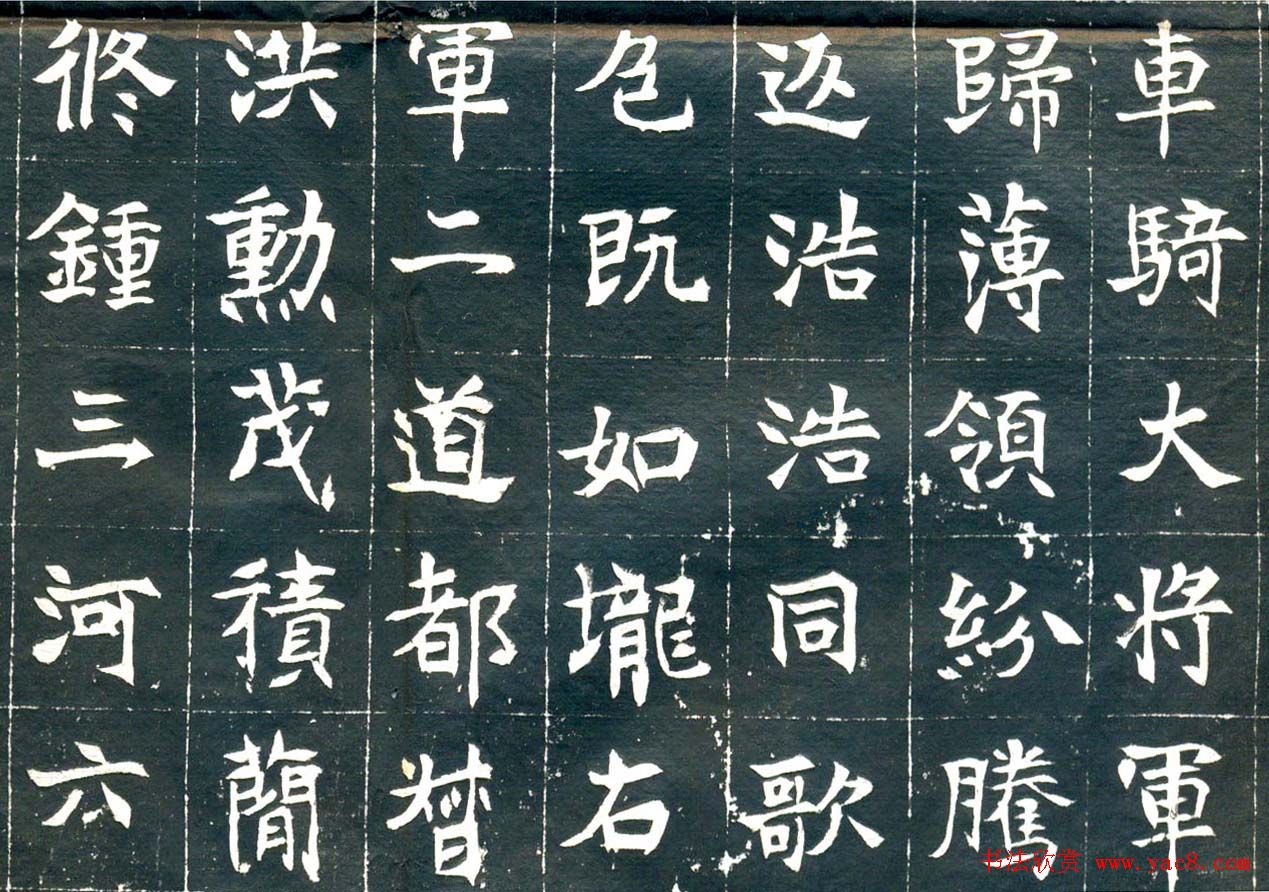 車騎大將軍
歸薄領紛騰
返浩浩同歌
包既如壠右
軍二道都督
洪勳茂積蕳
終鍾三河六
书法欣赏 www.yac8.com